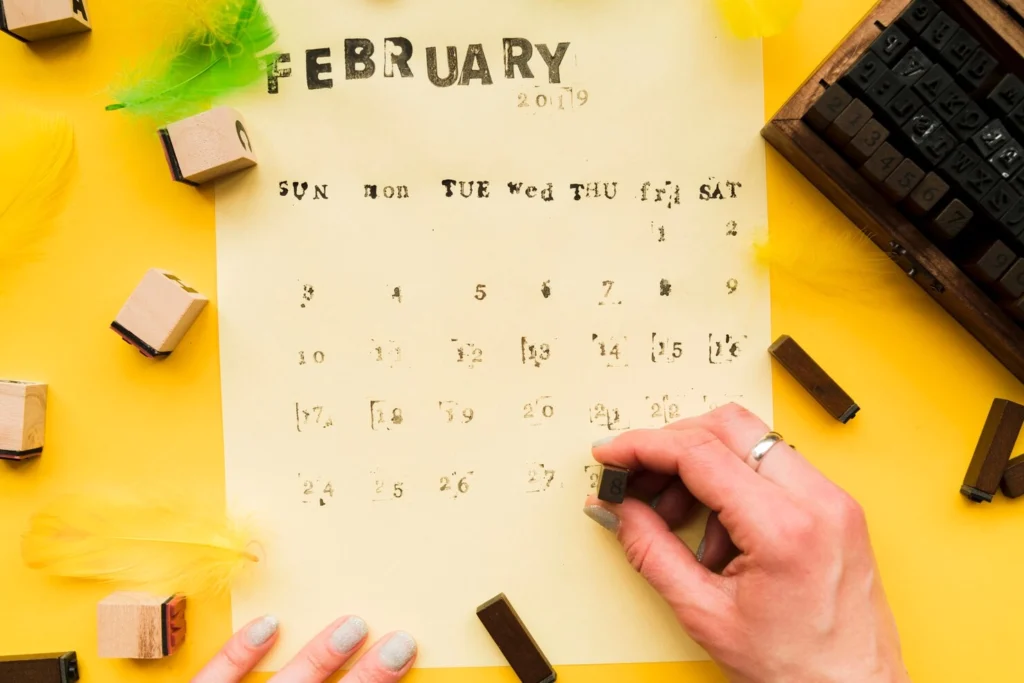 FEBRUARY
2019
SUN mon TUE Wed THU fri SAT
1 2
3 4 5 6 7 8 9
10 11 12 13 14 15 16
17 18 19 20 21 22
24 25 26 27 2
8
2 1 3 4 5 6 7 9